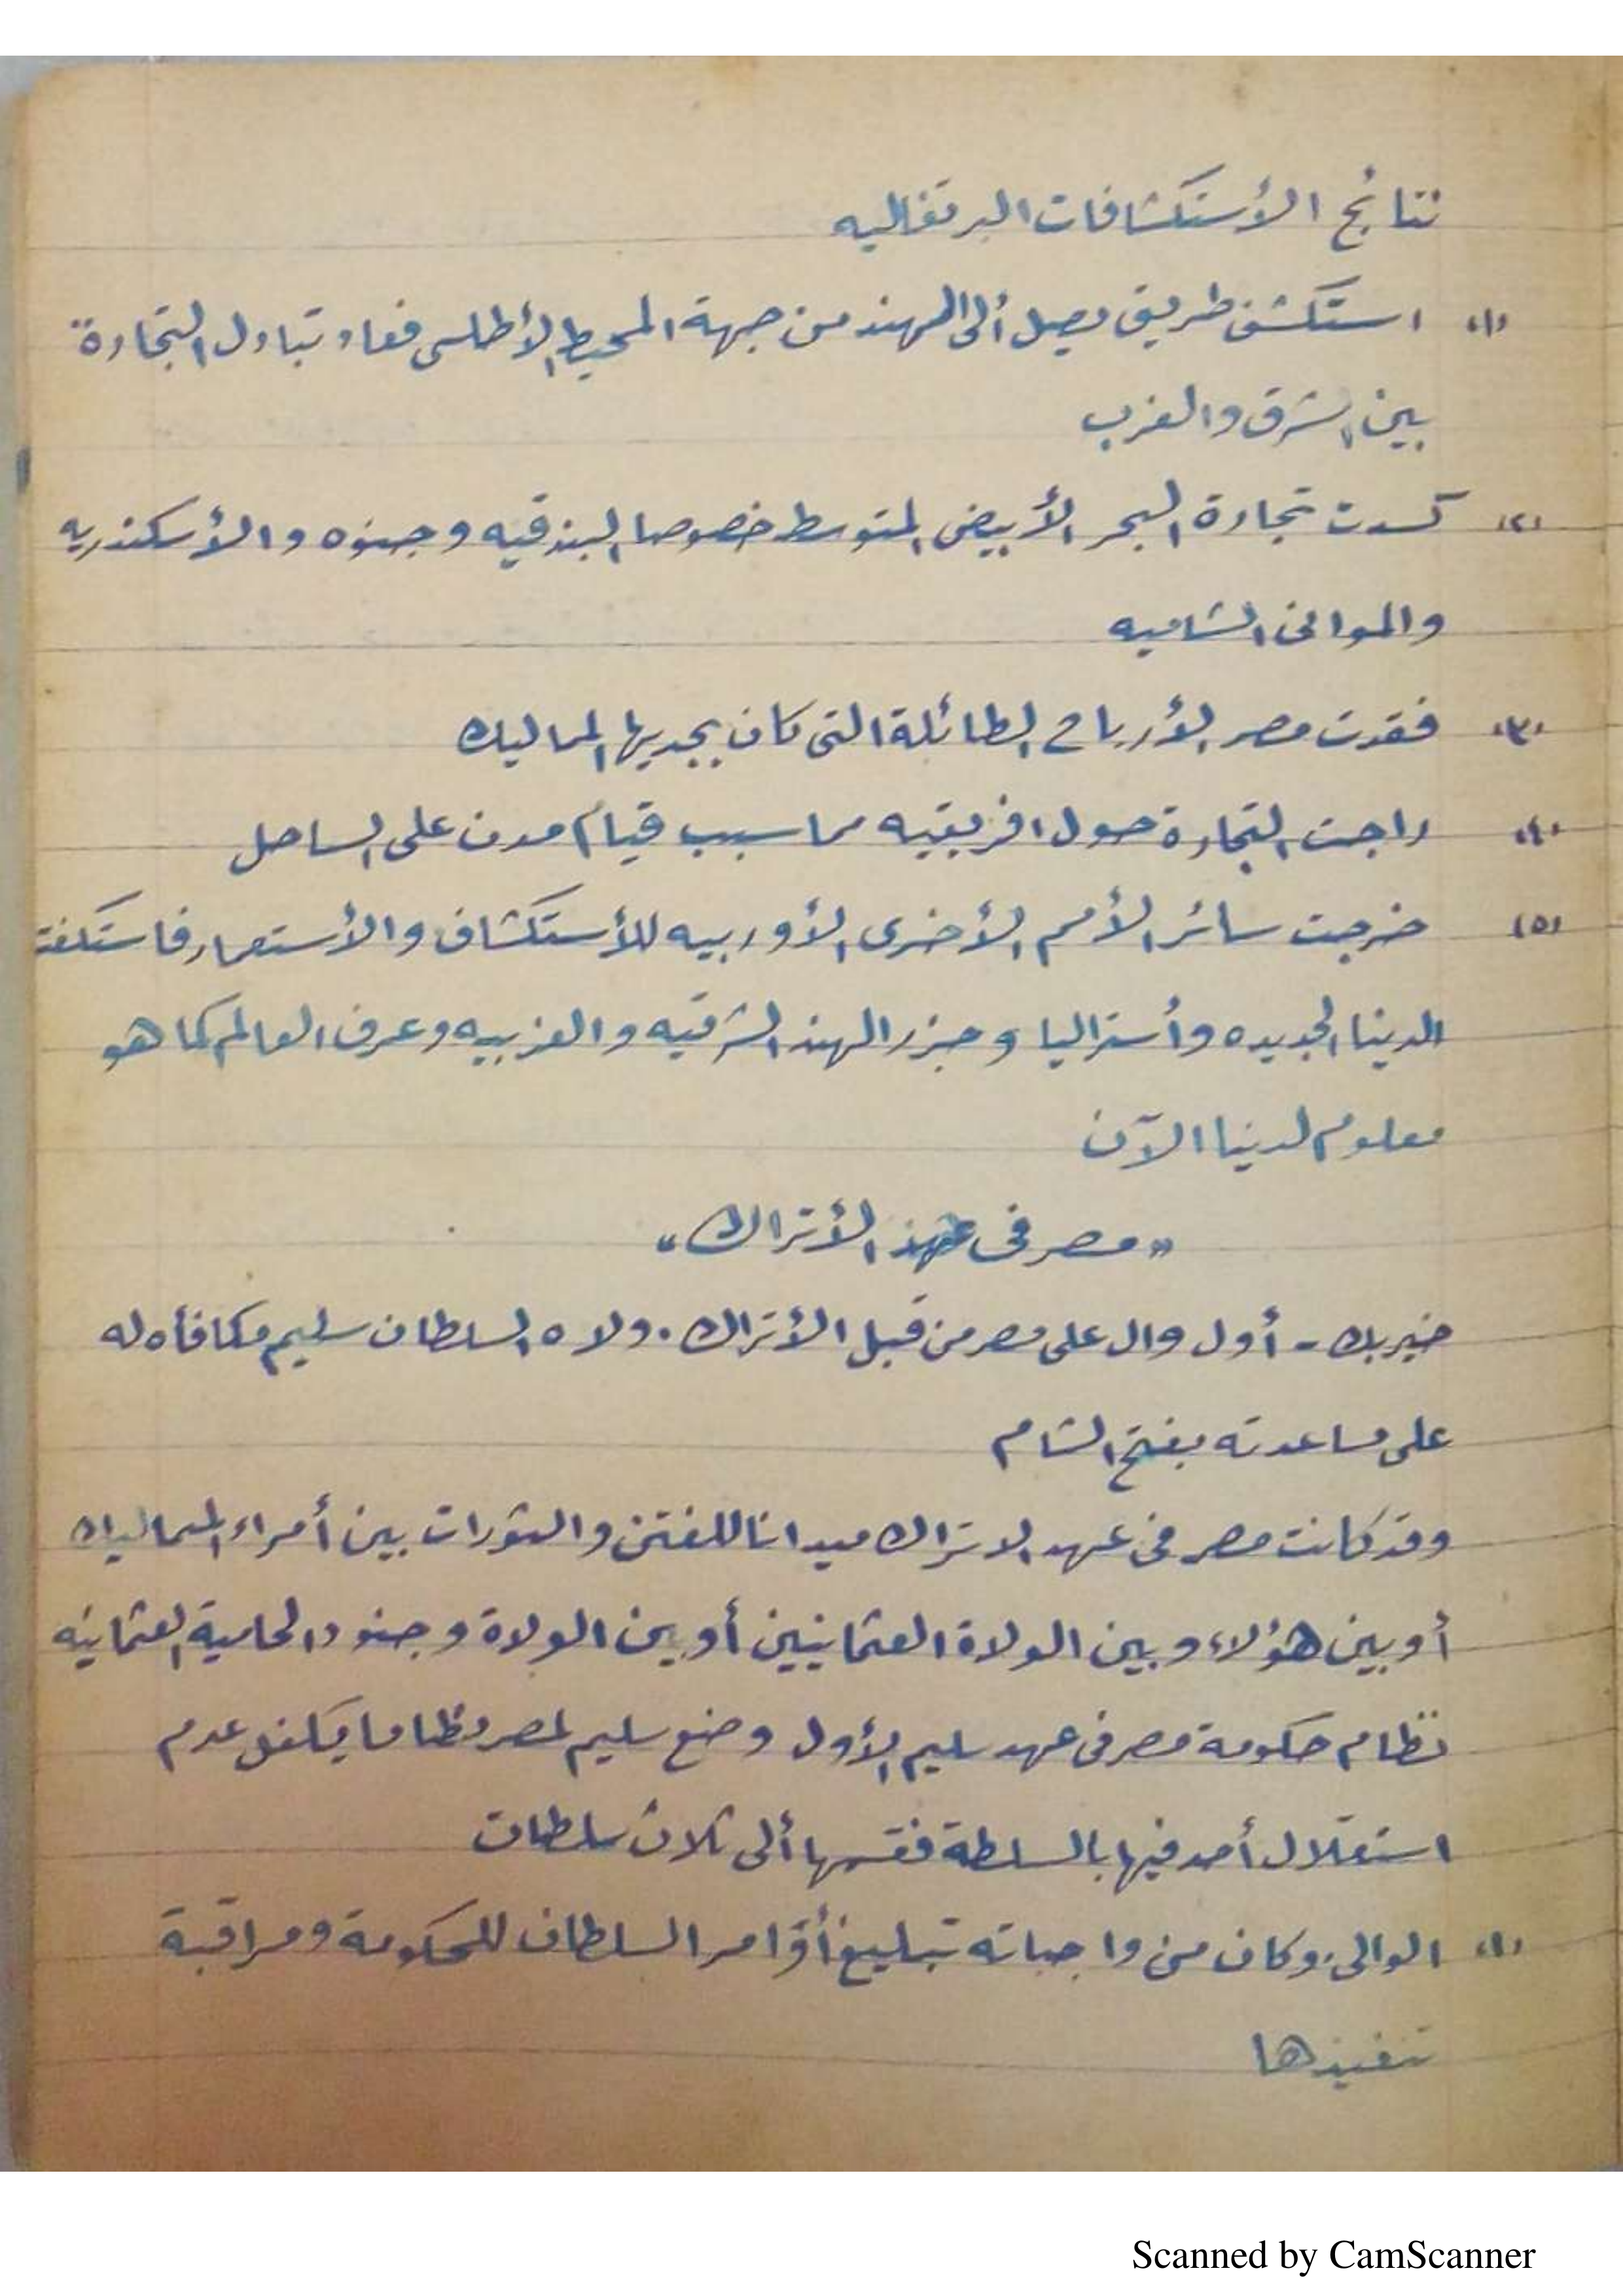 نتائج الأستكشافات البرتغاليه
(١) استكشف طريق يصل ألى الهند من جهة المحيط الأطلسى فعاد تبادل التجارة
بين الشرق والغرب
(٢) كسدت تجارة البحر الأبيض المتوسط خصوصا البندقيه وجنوه والأسكندريه
والموانى الشاميه
(٣) فقدت مصر الأرباح الطائلة التى كان يجديها المماليك
(٤) راجت التجارة حول افريقيه مما سبب قيام مدن على الساحل
(٥) خرجت سائر الأمم الأخرى الأوربيه للأستكشاف والأستعمار فاستكشفت
الدينا الجديده وأستراليا وجزر الهند الشرقيه والغربيه وعرف العالم كما هو
معلوم لدينا الآن
"مصر فى عهد الأتراك"
خيربك - أول وال على مصر من قبل الأتراك . ولاه السلطان سليم مكافأه له
على مساعدته بفتح الشام
وقد كانت مصر فى عهد الاتراك ميدانا للفتن والثورات بين أمراء المماليك
أو بين هؤلاء وبين الولاة العثمانيين أو بين الولاة وجنود الحامية العثمانيه
نظام حكومة مصر فى عهد سليم الأول وضع سليم لمصر نظاما يكفل عدم
استقلال أحد فيها بالسلطة فقسمها ألى ثلاث سلطات
(١) الوالى: وكان من واجباته تبليغ أوامر السلطان للحكومة ومراقبة
تنفيذها
Scanned by CamScanner